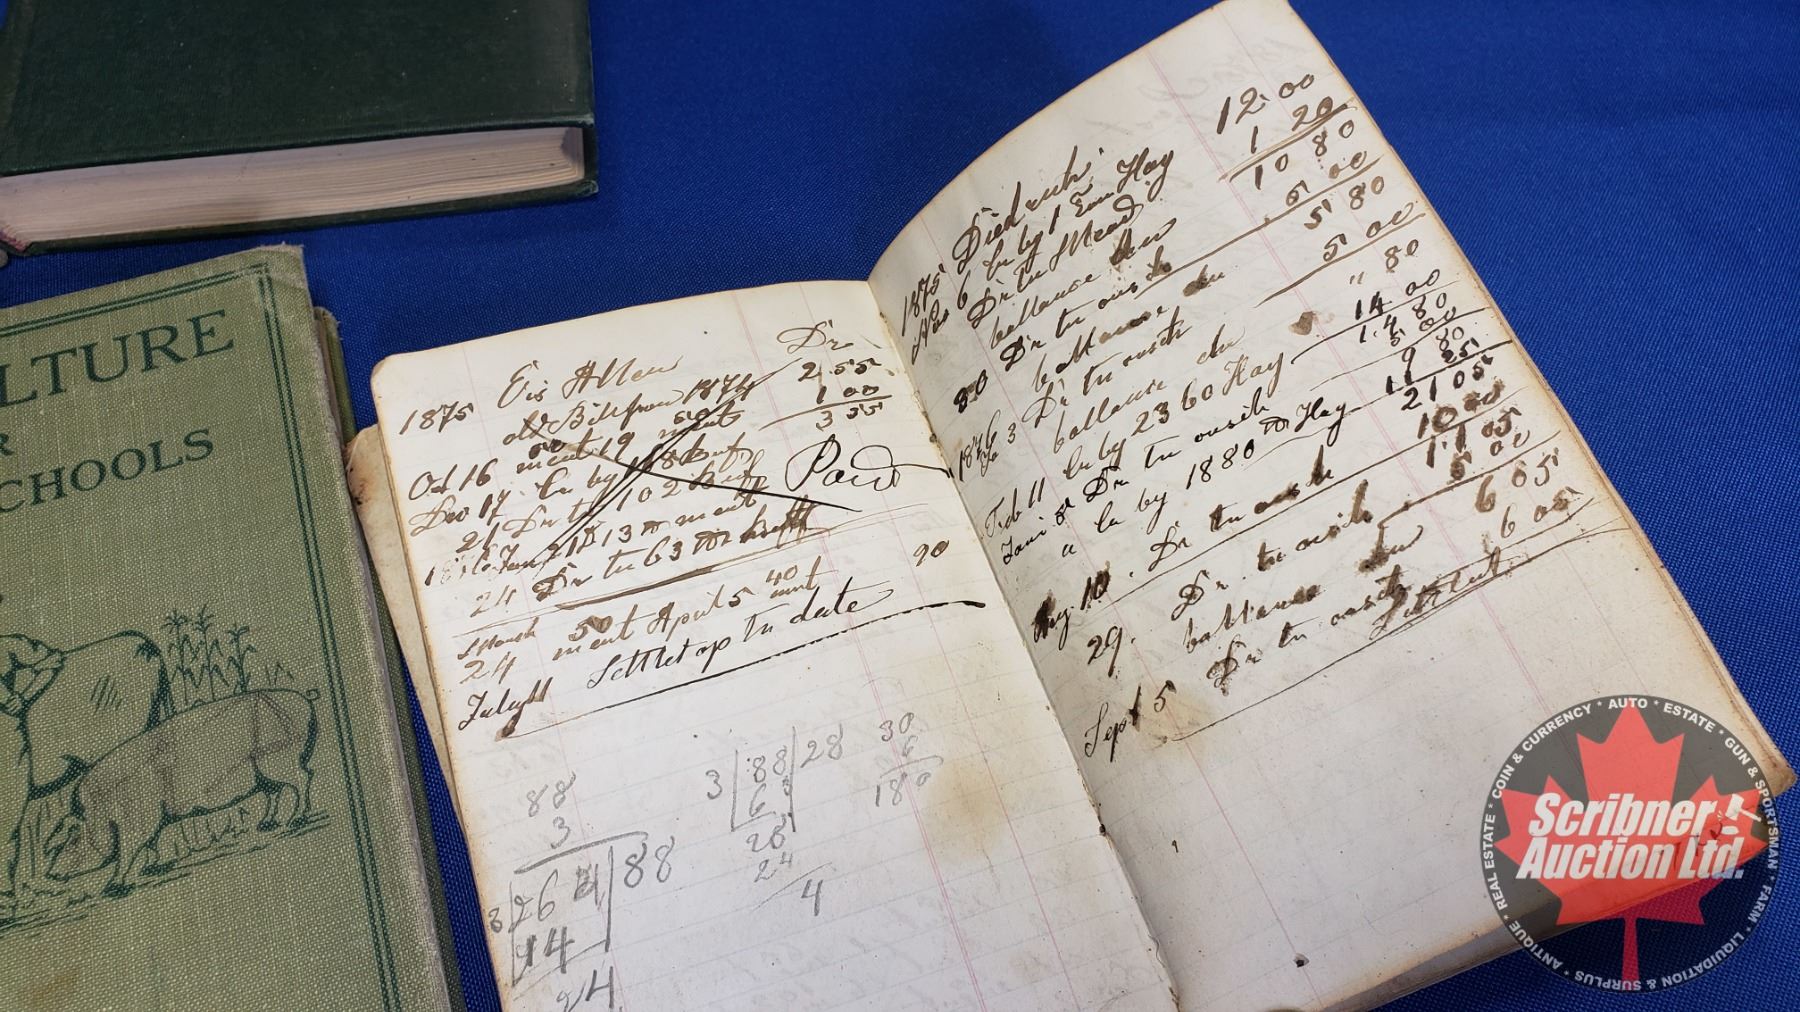 LTURE
R
CHOOLS
Dr
1875 Allen 2 55
old Bill from 1874 1 00
Oct 16 meat 19 3 55
Dec 17 Cr by Paid
21 Dr to 102 Beef
Jan 21 13 meat
24 Dr to 63
March 50 40 90
24 meat April 5 meat
July Settlet up to date
88
3
264 88
3
14
24
3 88 28
6
28
24
4
30
6
180
Diedrich 12 00
1875 6 Cr by 1 Hay 1 20
Dr to 10 80
ballance due 5 00
Dr to cash 5 80
ballance due 5 00
30 Dr to cash " 80
1876 3 ballance due 14 00
Feb 11 Cr by 2360 Hay 14 80
Dr to cash 5 00
a Cr by 1880 Hay 9 80
11 25
21 05
Aug. 10. Dr to cash 10 00
11 05
29. Dr. to cash 5 00
ballance due 6 05
Sept 5 Dr to cash 6 05
Settlet
Scribner
Auction Ltd.
COIN & CURRENCY * AUTO * ESTATE * GUN & SPORTSMAN * FARM * LIQUIDATION & SURPLUS * ANTIQUE * REAL ESTATE *